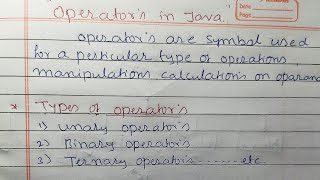 Operator's in Java."
Date:
Page
Operator's are symbol used
for a perticular type of operations,
manipulations, calculations on oparan
* Types of operator's
1) Unary operator's
2) Binary operator's
3) Ternary operator's ------- etc.